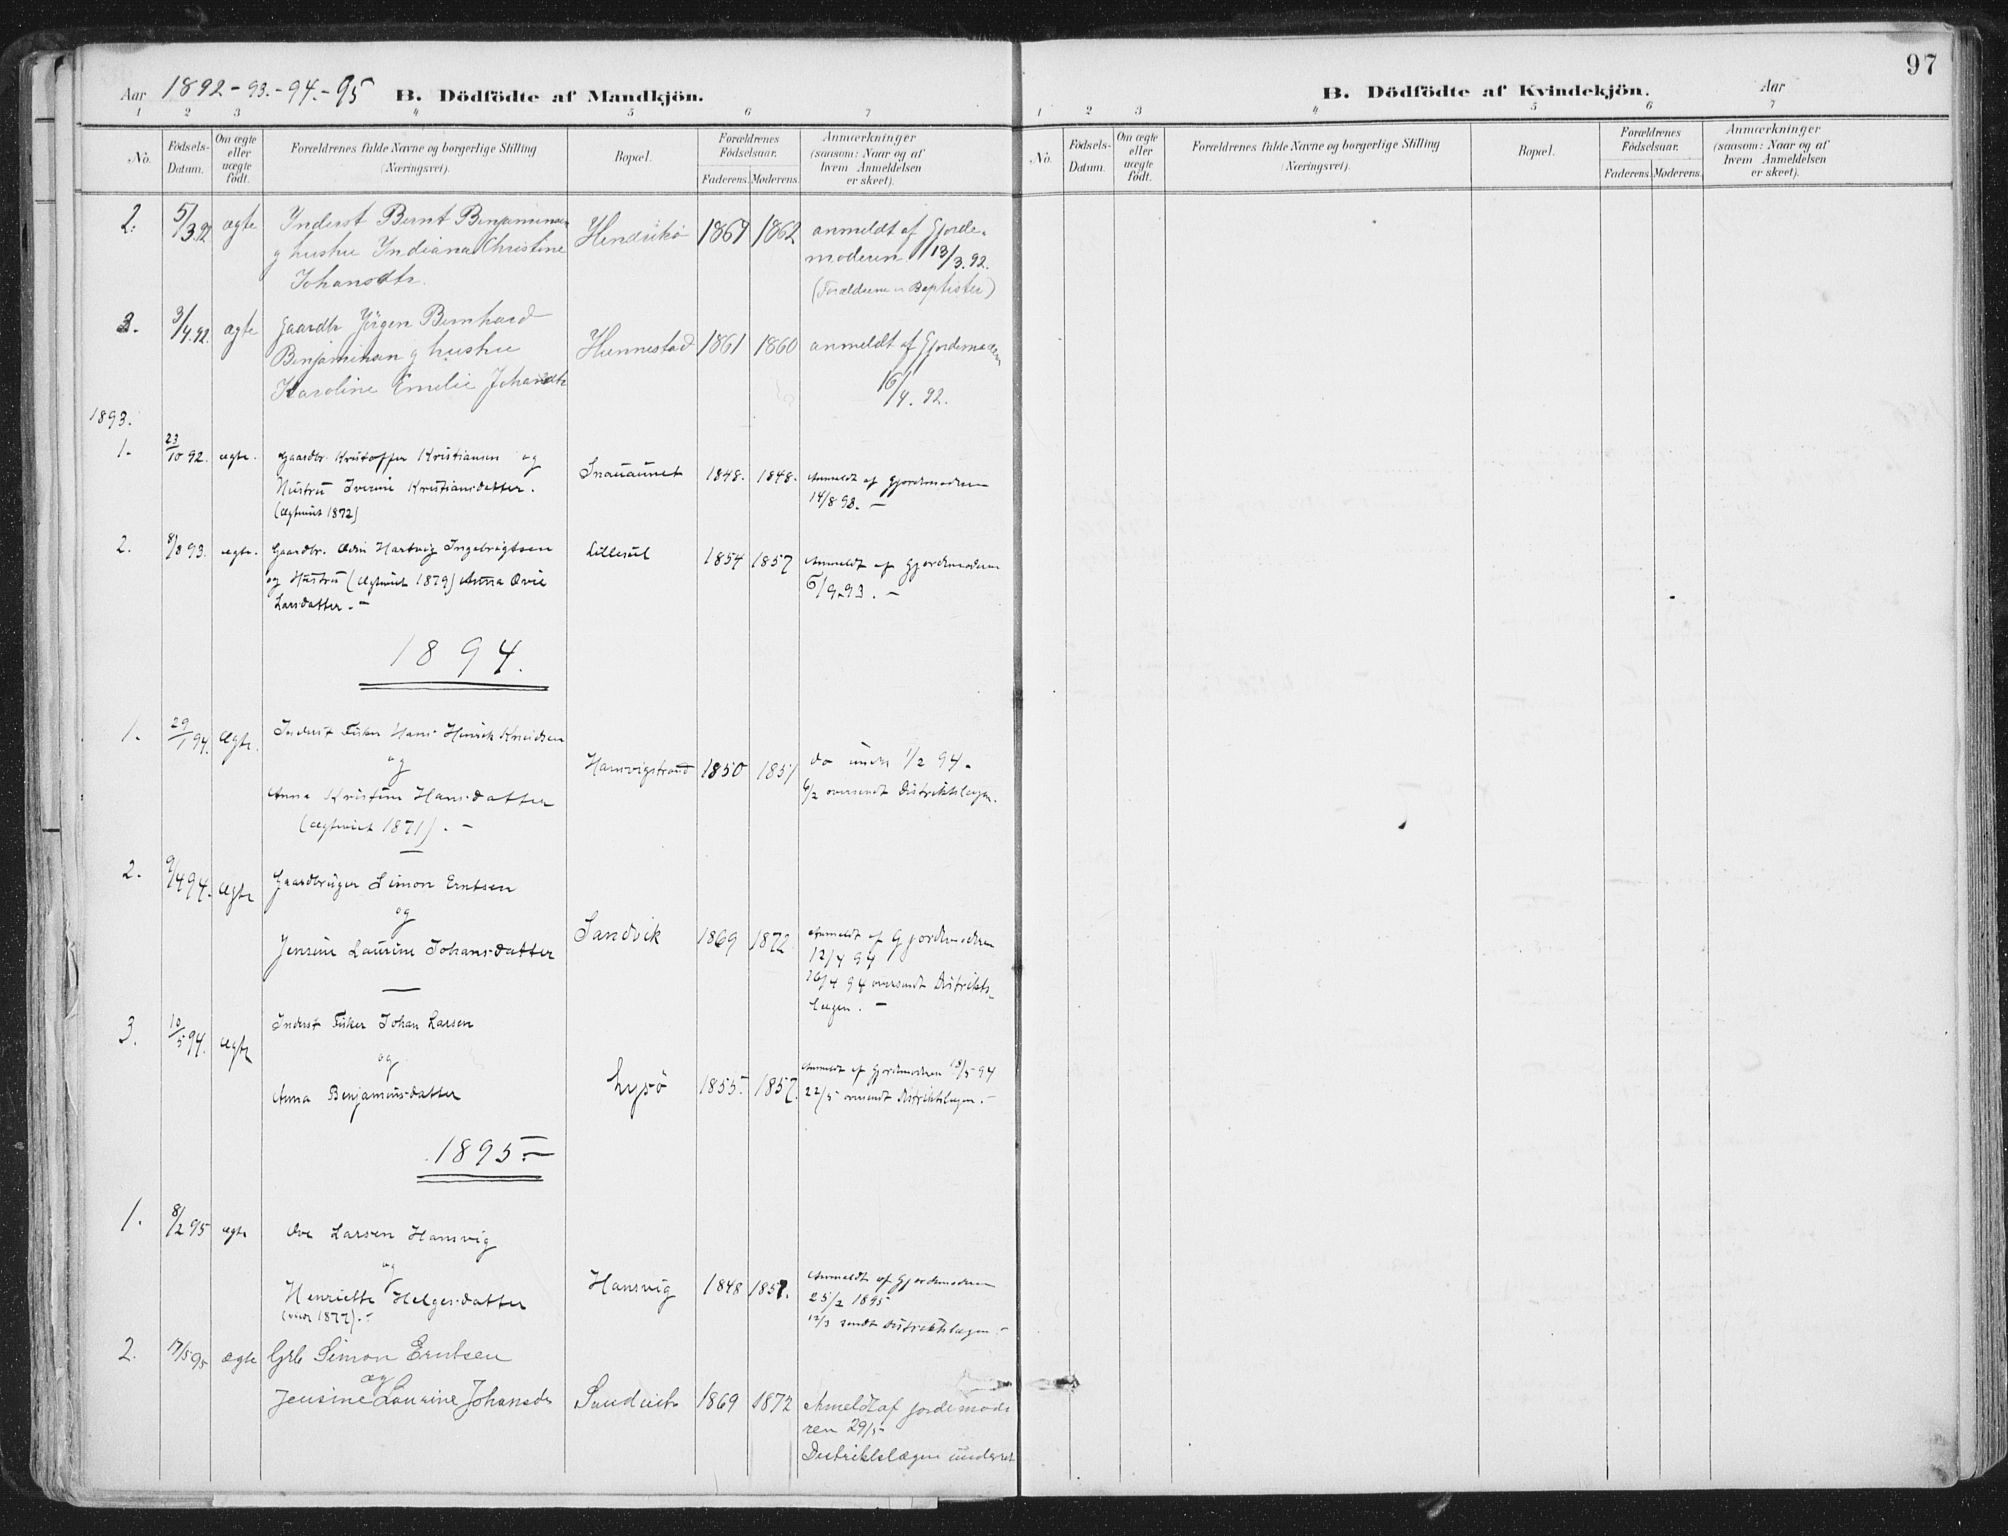 97
Aar 1892-93.-94.-95 B. Dödfödte af Mandkjön.
1 2 3 4 5 6 7
No. Födsels-Datum. Om ægte eller uægte födt. Forældrenes fulde Navne og borgerlige Stilling (Næringsvei). Bopæl. Forældrenes Födselsaar. Faderens. Moderens. Anmærkninger (saasom: Naar og af hvem Anmeldelsen er skeet).
2. 5/3.92 ægte Inderst Bernt Benjaminsen
g hustru Indiana Christine
Johansdtr.
1862 anmeldt af Gjorde-
moderen 13/3.92.
(Forældrene er Baptister)
3. 3/4.92. ægte Gaardbr Jörgen Bernhard
Benjaminsen g hustru
Karoline Emelie Johansdtr
Hunnestad 1861 1860 anmeldt af Gjordemoderen
16/4.92.
1893.
1. 23/10 92. ægte. Gaardbr. Kristoffer Kristiansen og
Hustru Iverine Kristiansdatter.
(ægteviet 1872)
1848. 1848. Anmeldt af Gjordemoderen
14/8 93. —
2. 8/8 93. ægte. Gaardbr. Edin Hartvig Ingebrigtsen
og Hustru (ægteviet 1879) Anna Ovie
Larsdatter. —
Lillesul 1854 1857 Anmeldt af Gjordemoderen
6/9 93. —
1894.
1. 29/1 94. Ægte. Inderst Fisker Hans Henrik Knudsen
og
Anna Kristine Hansdatter
(ægteviet 1871). —
Hansvigstrand 1850 1851 do under 1/2 94.
6/2 oversendt Distriktslægen.
2. 9/4 94. Ægte Gaardbruger Simon Erntsen
og
Jensine Laurine Johansdatter
Sandvik 1869 1872 Anmeldt af Gjordemoderen
12/4 94
16/4 94 oversendt Distrikts-
lægen. —
3. 10/5 94. Ægte Inderst Fisker Johan Larsen
og
Anna Benjaminsdatter
Lysö 1855. 1857. Anmeldt af Gjordemoderen 18/5 94
22/5 oversendt Distriktslægen. —
1895. —
1. 8/2 95 ægte Ove Larsen Hansvig
og
Henriette Helgesdatter
(viede 1877). —
Hansvig 1848 1851. Anmeldt af Gjordemoderen
25/2 1895
12/3 sendt Distriktslægen. —
2. 17/5 95 ægte Grb Simon Erntsen
og
Jensine Laurine Johansdr
Sandvik 1869 1872 Anmeldt af jordemode
ren 29/5
Distriktslægen underret
B. Dödfödte af Kvindekjön. Aar
1 2 3 4 5 6 7
No. Födsels-Datum. Om ægte eller uægte födt. Forældrenes fulde Navne og borgerlige Stilling (Næringsvei). Bopæl. Forældrenes Födselsaar. Faderens. Moderens. Anmærkninger (saasom: Naar og af hvem Anmeldelsen er skeet).